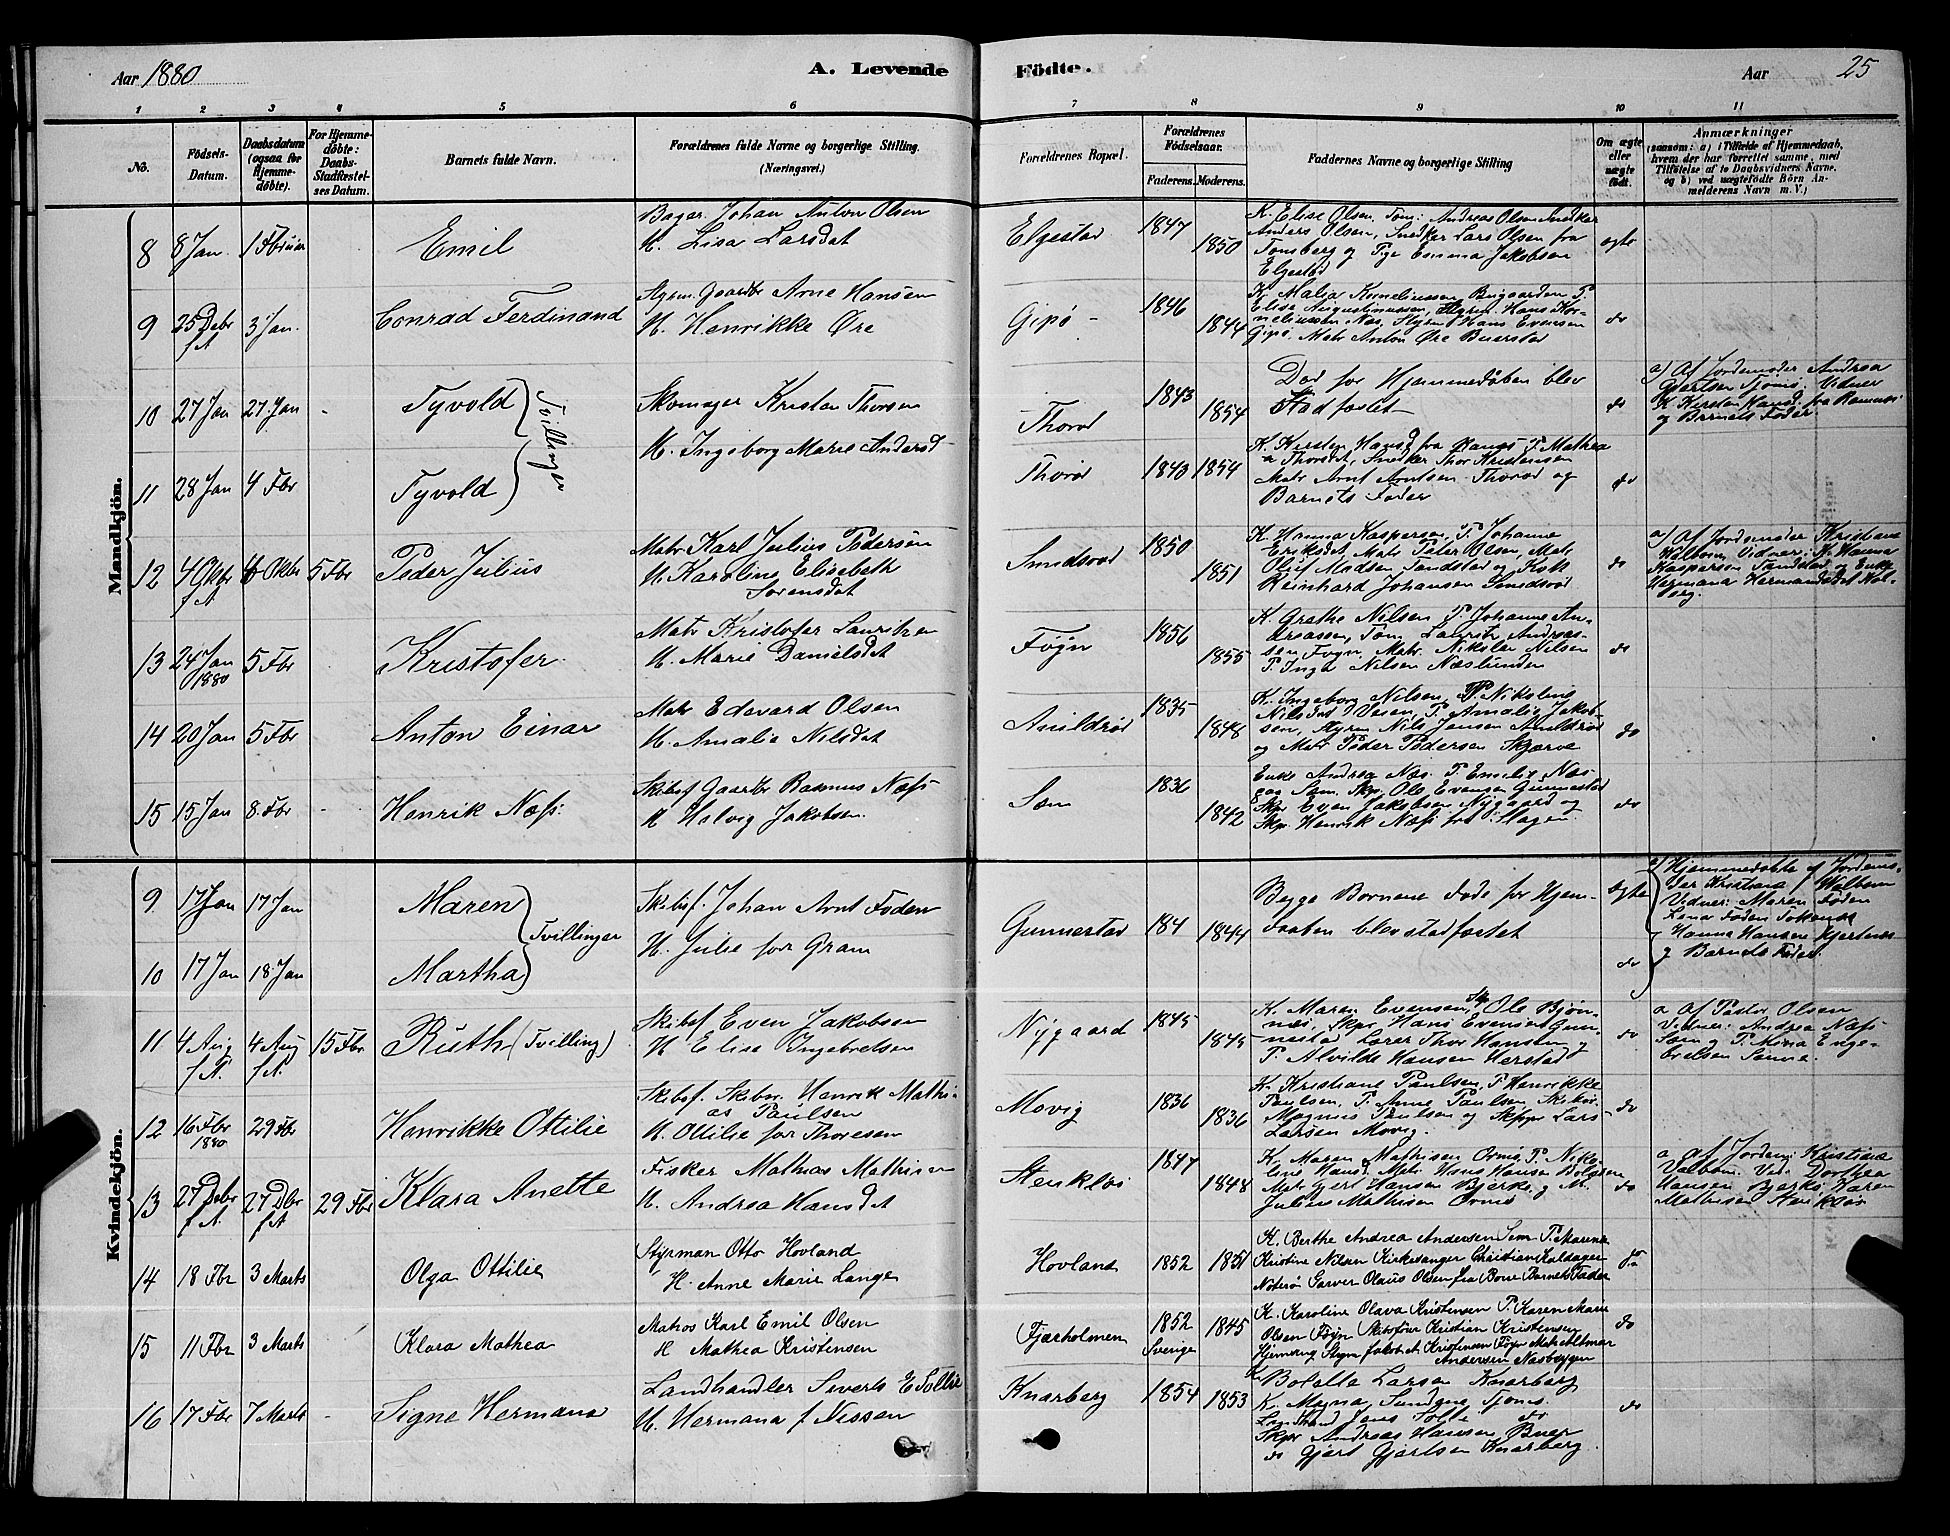 Aar 1880
A. Levende
Födte.
Aar
25
1 2 3 4 5 6 7 8 9 10 11
No.
Födsels-Datum.
Daabsdatum (ogsaa for Hjemmedöbte).
For Hjemmedöbte: Daabs-Stadfæstelses Datum.
Barnets fulde Navn.
Forældrenes fulde Navne og borgerlige Stilling. (Næringsvei.)
Forældrenes Bopæl.
Forældrenes Födselsaar.
Faderens. Moderens.
Faddernes Navne og borgerlige Stilling
Om ægte eller uægte födt.
Anmærkninger
(saasom: a) i Tilfælde af Hjemmedaab, hvem der har forrettet samme, med Tilföielse af to Daabsvidners Navne, og b) ved uægtefödte Börn Anmelderens Navn m. V.)
Mandkjön.
8 8 Jan. 1 Februar Emil
Bager Johan Anton Olsen
H. Lisa Larsdat
Elgestad 1847 1850
K. Elise Olsen, Tom: Andreas Olsen Snedker
Anders Olsen, Snedker Lars Olsen fra
Tønsberg og Pige Emma Jakobsen
Elgestad
ægte
9 25 Debr f A 3 Jan. Conrad Ferdinand
Styrm. Gaardbr Arne Hansen
H. Henrikke Øre
Gipø 1846 1844
K. Malia Korneliussen Bugaarden P.
Elise Augustinussen, Styrm. Hans Kor-
neliussen Næs, Styrm Hans Evensen
Gipø. Matr Anton Øre Buerstad
do
10 27 Jan 27 Jan - Tyvold
Tvillinger
Skomager Kristen Thorsen
H. Ingeborg Marie Andersd
Thorød 1843 1854
Død før Hjemmedøben blev
Stadfæstet
do
a) Af Jordemoder Andrea
Gjertsen Tjømø. Vidner
K Kirsten Hansd. fra Ramnæs
og Barnets Fader.
11 28 Jan 4 Fbr Tyvold
Thorød 1843 1854
K. Kirsten Hansd fra Ramnæs P. Mathea
Thorsdat, Snedker Thor Kristensen
Matr Arnt Arntsen Thorød og
Barnets Fader
do
12 4 Oktbr f A 6 Oktbr 5 Fbr Peder Julius
Matr Karl Julius Pedersen
H. Karoline Elisabeth
Sørensdat
Smidsrød 1850 1851
K. Hanna Kaspersen, P. Johanne
Eriksdat, Matr Peter Olsen, Matr.
Oluf Madsen Sandstad og Kok
Reinhard Johansen Smidsrød
do
a) Af Jordemoder Kristiane
Walbom Vidner: K. Hanna
Kaspersen Sandstad og Enke
Hermana Hermansdat Hol-
berg.
13 24 Jan 1880 5 Fbr Kristofer
Matr Kristofer Lauritzen
H. Marie Danielsdat
Føgn 1856 1855
K. Grethe Nilsen P. Johanne An-
dreassen, Tom Laurits Andreas-
sen Føgn, Matr. Nikolai Nilsen
P. Inga Nilsen Næslunden
do
14 20 Jan 5 Fbr Anton Einar
Matr Edvard Olsen
H. Amalie Nilsdat
Anildrød 1835 1848
K. Ingeborg Nilsen, P. Nikoline
Nilsdat Veien, P. Amalie Jakob-
sen, Styrm Nils Jensen Anildrød
og Matr Peder Pedersen Skjerve
do
15 15 Jan 8 Fbr - Henrik Næss
Skibsf Gaardbr Rasmus Næss
H Helvig Jakobsen.
Sem 1836 1842
Enke Andrea Næs. P. Emelie Næs
paa Sem. Skp. Ole Evensen Gunnestad
Skpr Even Jakobsen Nygaard og
Skp. Henrik Næss fra Slagen.
do
Kvindekjön.
9 17 Jan 17 Jan Maren
Tvillinger
Skibsf. Johan Arnt Foden
H. Julie før Gram
Gunnestad 184 1844
Begge Børnene døde før Hjem-
daaben blev stadfæstet
ægte
a) Hjemmedøbte af Jordemo-
der Kristiane Walbom
Vidner: Maren Føden
Lena Føden Johanne
Hanna Hansen Hjertnes
og Barnets Fader.
10 17 Jan 18 Jan Martha
do
11 4 Aug f A. 4 Aug f A. 15 Fbr Ruth (Tvilling)
Skibsf Even Jakobsen
H Elise Ingebretsen
Nygaard 1845 1845
K. Maren Evensen, Skp Ole Bjøn-
næs, Skpr Hans Evensen Gun-
nestad Lærer Thor Hansen og
P. Alvilde Hansen Herstad
do
a Af Pastor Olsen
Vidner: Andrea Næss
Sem og P. Mina Enge-
bretsen Sanne.
12 16 Fbr 1880 29 Fbr Henrikke Ottilie
Skibsf. Skibsr. Henrik Mathi-
as Paulsen
H. Ottilie før Thoresen
Movig 1836 1836
K. Kristiane Paulsen, P. Henrikke
Paulsen, P. Anne Paulsen Skibsr.
Magnus Paulsen og Skpr Lars
Larsen Movig.
do
13 27 Debr f A. 27 Dbr f A 29 Fbr Klara Anette
Fisker Mathias Mathisen
H. Andrea Hansdat
Stenkløs 1847 1848
K. Maren Mathisen Ormø, P. Niko-
line Hansd, Matr. Hans Hansen Bolgden
Matr Gert Hansen Bjerkø, og M.
Julius Mathisen Ormø
do
a af Jordemj. Kristine
Valbom. Vid: Dorthea
Hansen Bjerkø Karen
Mathisen Stenkløs
14 18 Fbr 3 Marts Olga Ottilie
Styrman Otto Hovland
H. Anne Marie Lange
Hovland 1852 1851
K. Berthe Andrea Andersen Sem P. Marene
Kristine Nilsen Kirkesanger Christian Kaldager
Nøterø Garver Olaus Olsen fra Borre Barnets Fader
do
15 11 Fbr 3 Marts Klara Mathea
Matros Karl Emil Olsen
H Mathea Kristensen
Fjærholmen 1852 Sverige 1845
K. Karoline Olava Kristensen P. Karen Marie
Olsen Føyn Skibsfører Kristian Kristensen
Hjemseng Styrm Jakob A Kristensen Føyn Matr Altmar
Andersen Næsbyggen
do
16 17 Fbr 7 Marts - Signe Hermana
Landhandler Severts E Soltie
H. Hermana f Nissen
Knarberg 1854 1853
K Bolette Larsen Knarberg
K. Magna Sundene Tjømø.
Landhand Jens Solti do
Skpr Andreas Hansen Buer
do Gjert Gjertsen Knarberg.
do